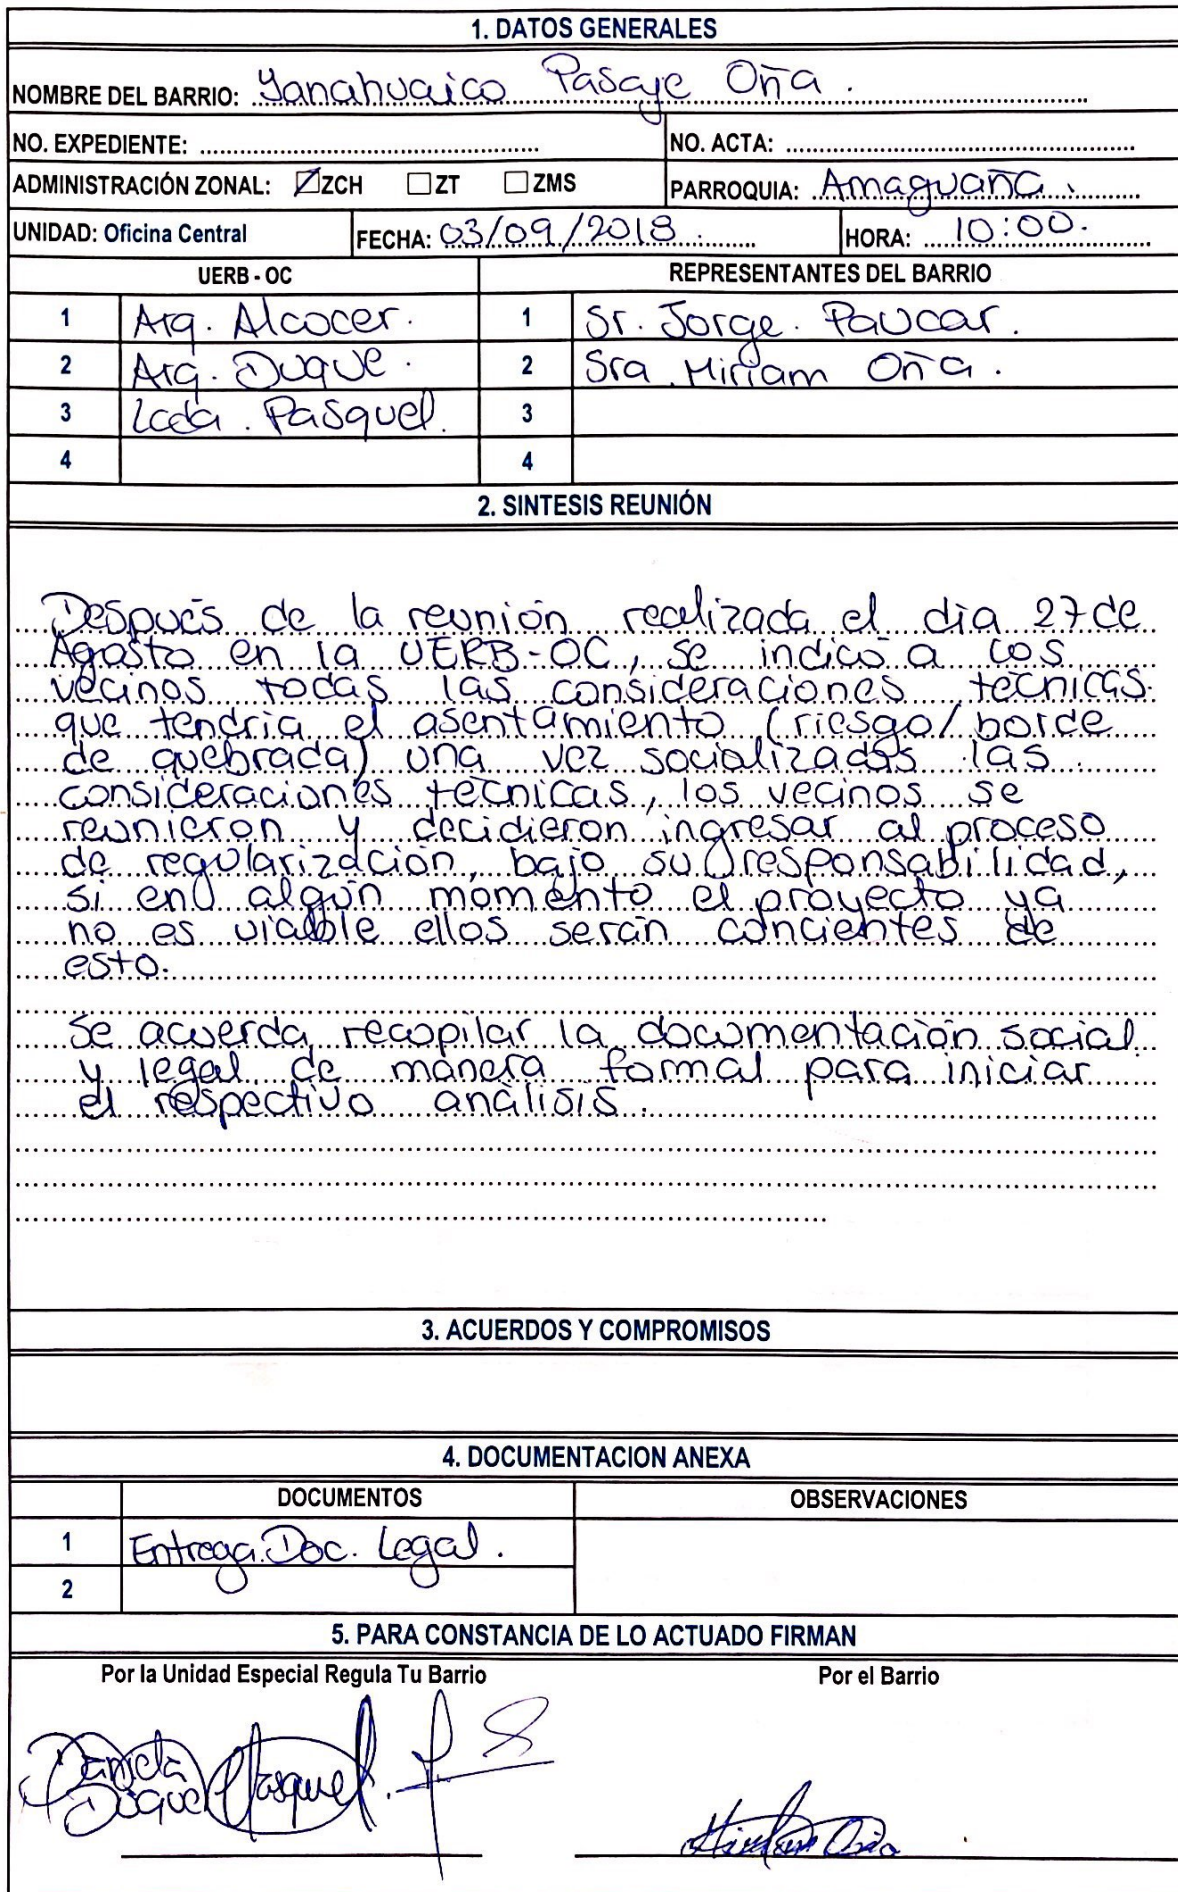 1. DATOS GENERALES
NOMBRE DEL BARRIO: Yanahuaico Pasaje Oña.
NO. EXPEDIENTE:
NO. ACTA:
ADMINISTRACIÓN ZONAL: ☑ZCH ☐ZT ☐ZMS
PARROQUIA: Amaguaña.
UNIDAD: Oficina Central
FECHA: 03/09/2018.
HORA: 10:00.
UERB - OC
REPRESENTANTES DEL BARRIO
1 Arq. Alcocer. 1 Sr. Jorge. Paucar.
2 Arq. Duque. 2 Sra. Miriam Oña.
3 Lcda. Pasquel. 3
4 4
2. SINTESIS REUNIÓN
Después de la reunión realizada el dia 27 de
Agosto en la UERB-OC, se indicó a los
vecinos todas las consideraciones técnicas.
que tendria el asentamiento (riesgo/borde
de quebrada) una vez socializadas las
consideraciones técnicas, los vecinos se
reunieron y decidieron ingresar al proceso
de regularización, bajo su responsabilidad,
si en algún momento el proyecto ya
no es viable ellos serán concientes de
esto.
Se acuerda recopilar la documentación social
y legal de manera formal para iniciar
el respectivo análisis.
3. ACUERDOS Y COMPROMISOS
4. DOCUMENTACION ANEXA
DOCUMENTOS OBSERVACIONES
1 Entrega Doc. Legal.
2
5. PARA CONSTANCIA DE LO ACTUADO FIRMAN
Por la Unidad Especial Regula Tu Barrio
Por el Barrio
Daniela
Duque
Pasquel.
Miriam Oña